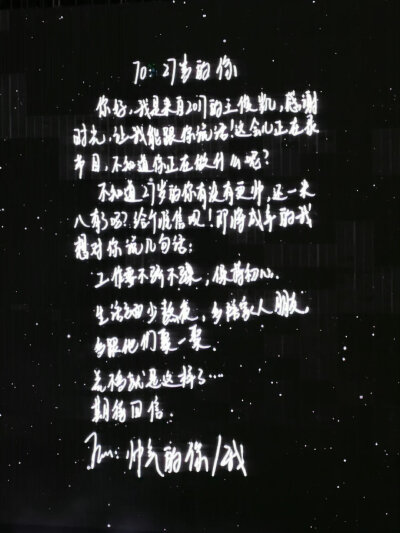 To: 27岁的你
你好,我是来自2017的王俊凯,感谢
时光,让我能跟你说话!这会儿正在录
节目,不知道你正在做什么呢?
不知道27岁的你有没有更帅,一米
八有了吗?给个准信呗!即将成年的我
想对你说几句话:
工作要不骄不躁,保持初心.
生活要少熬夜,多陪家人朋友
多跟他们聚一聚.
差不多就是这样了...
期待回信.
From: 帅气的你/我